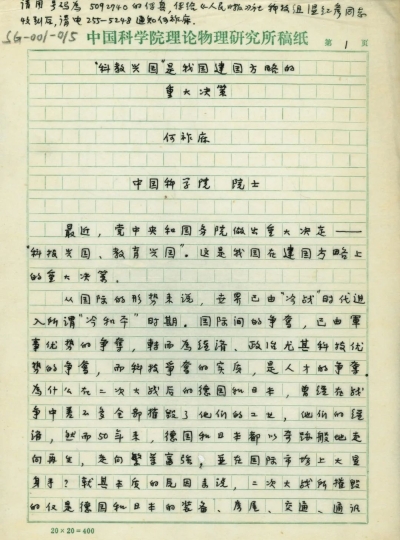 请用号码为5092940的传真传给《人民日报》社科技组温红彦同志
收到后,请电255-5248通知何祚庥.
SG-001-015 中国科学院理论物理研究所稿纸 第 1 页
"科教兴国"是我国建国方略的
重大决策
何祚庥
中国科学院 院士
最近,党中央和国务院做出重大决定——
"科技兴国、教育兴国"。这是我国在建国方略上
的重大决策。
从国际的形势来说,世界已由"冷战"时代进
入所谓"冷和平"时期。国际间的争夺,已由军
事优势的争夺,转而为经济、政治尤其科技优
势的争夺,而科技争夺的实质,是人才的争夺。
为什么在二次大战后的德国和日本,曾经在战
争中差不多全部摧毁了他们的工业,他们的经
济,然而50年来,德国和日本都以奇迹般地走
向再生,走向繁荣富强,并在国际市场上大显
身手?就其本质的原因来说,二次大战所摧毁
的仅是德国和日本的装备、房屋、交通、通讯
20×20=400